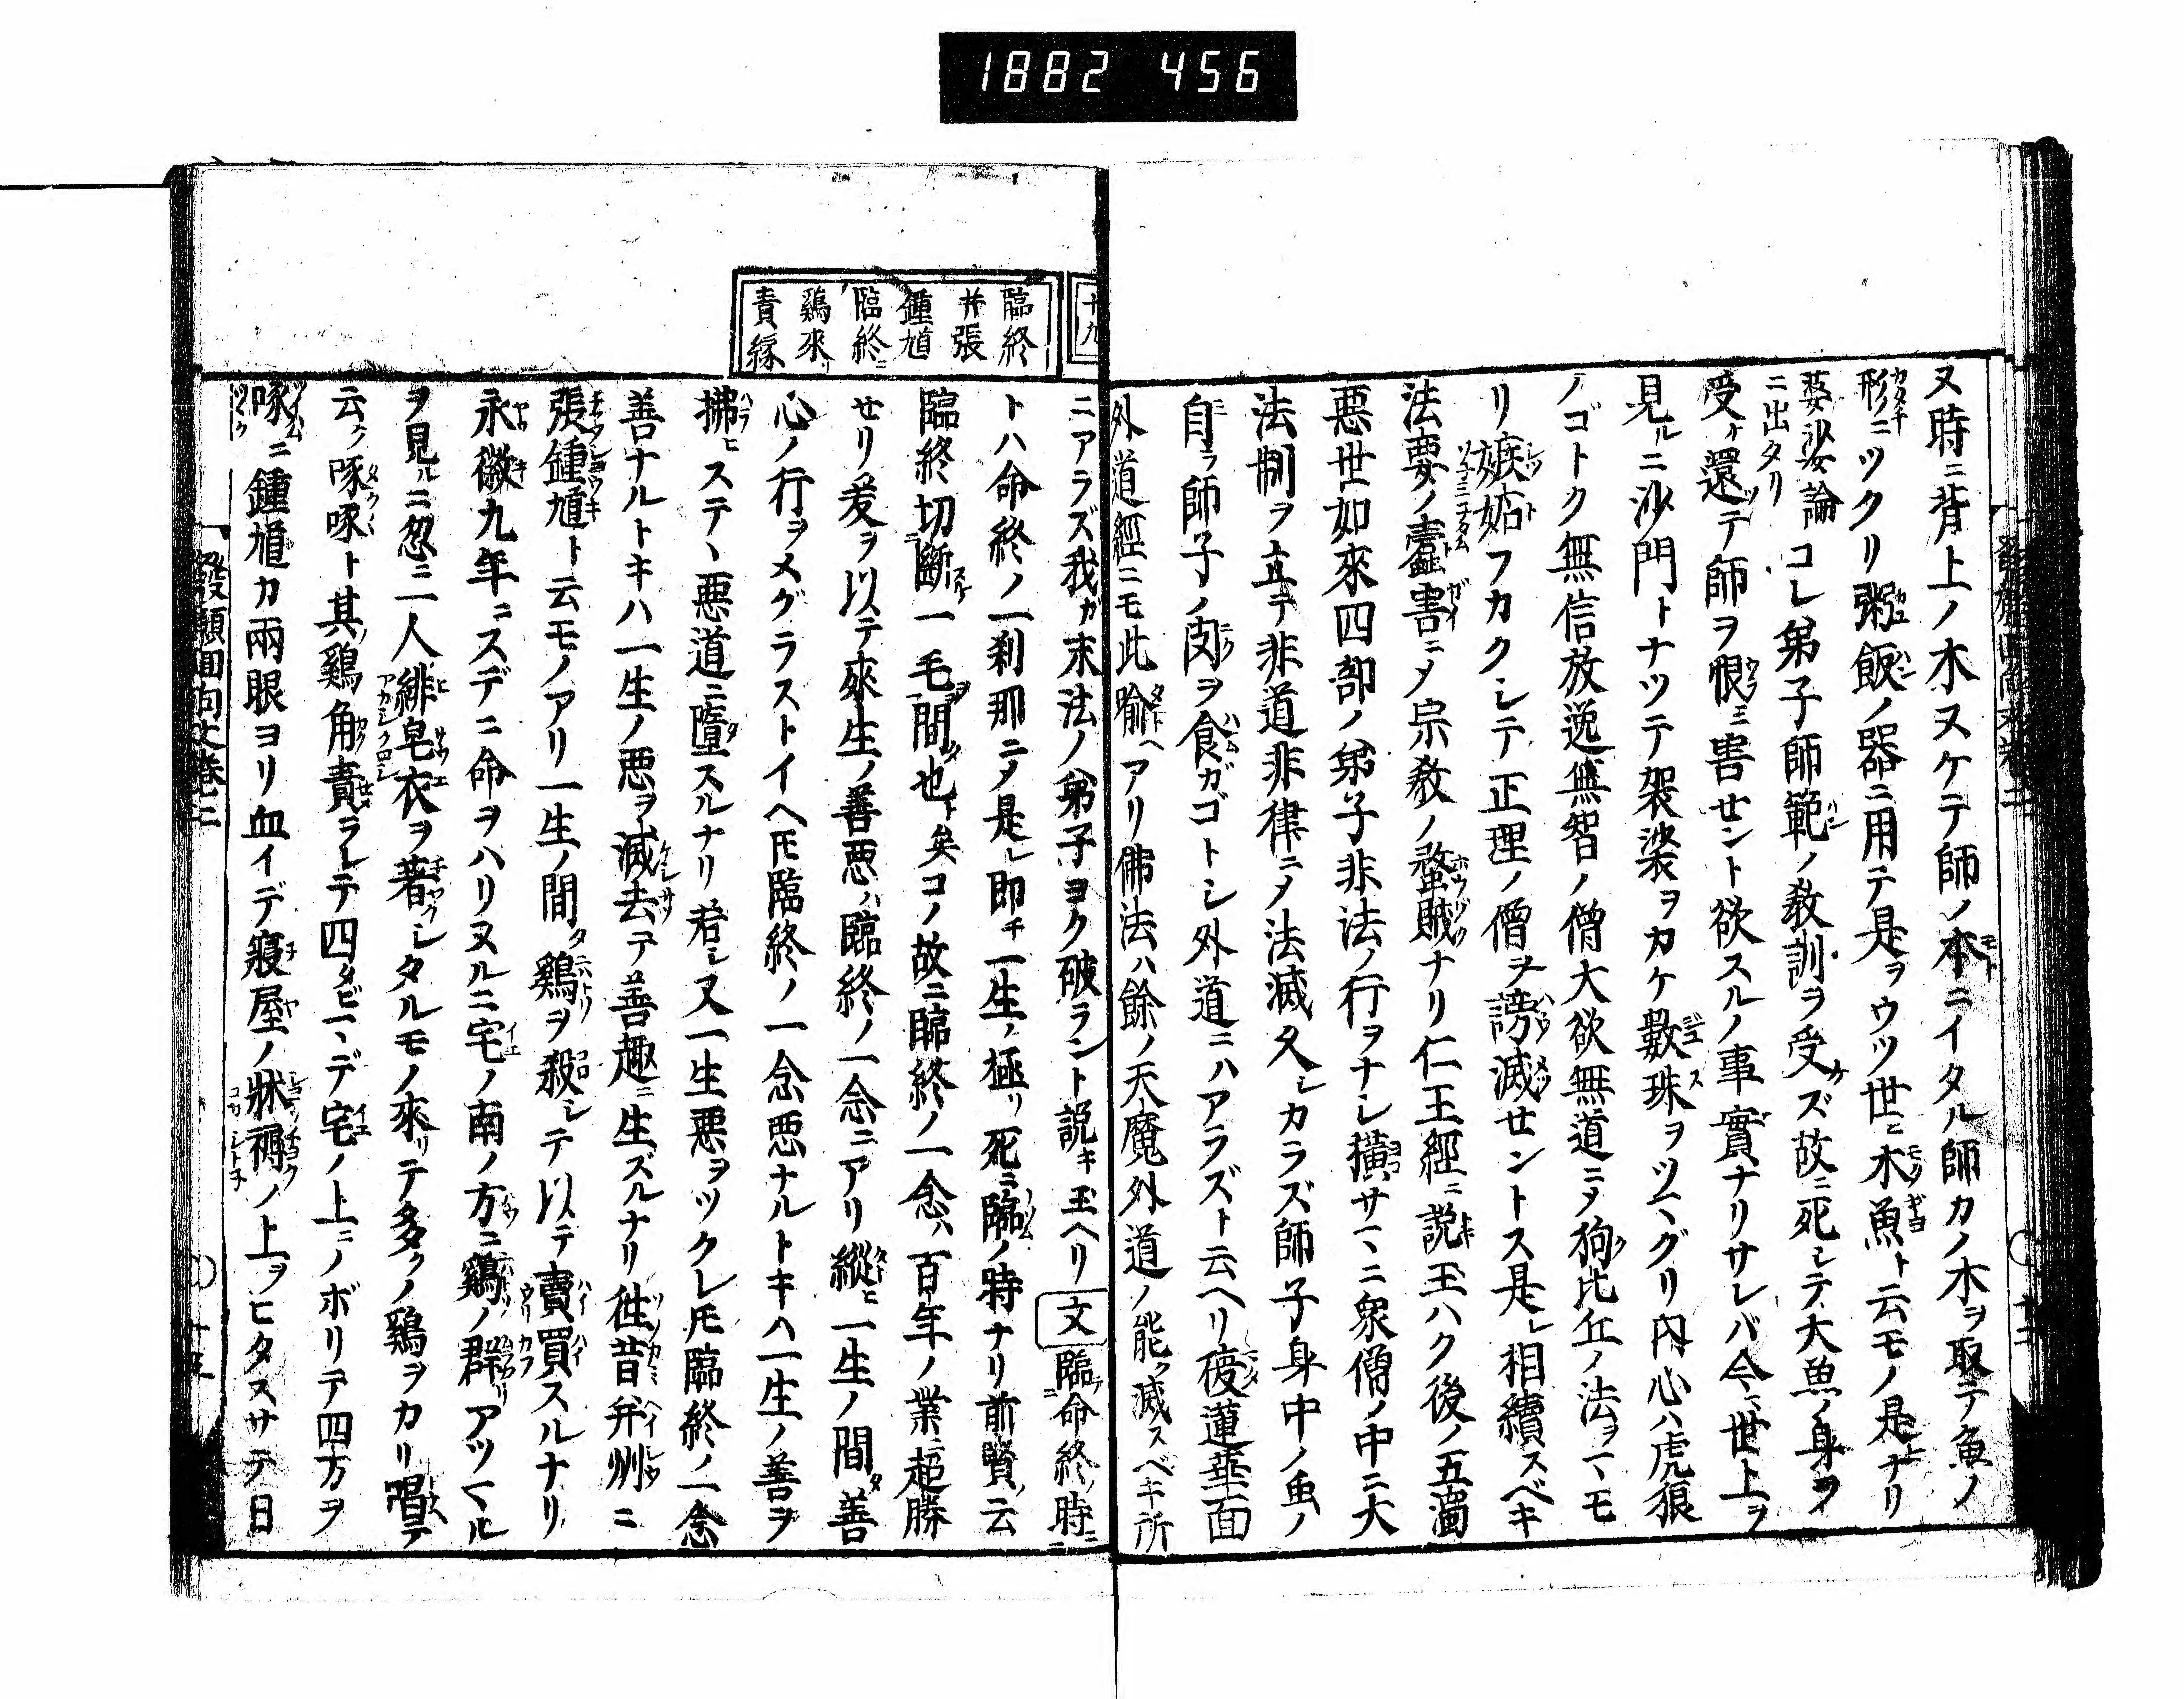 1882 456
ヌ時ニ背上ノ木ヌケテ師ノ本ニイタル師カノ木ヲ取テ魚ノ
形ニツクリ粥飯ノ器ニ用テ是ヲウツ世ニ木魚ト云モノ是ナリ
婆沙論ニ出タリ コレ弟子師範ノ教訓ヲ受ズ故ニ死シテ大魚ノ身ヲ
受ケ還テ師ヲ恨ミ害セント欲スルノ事實ナリサレバ今世上ヲ
見ルニ沙門トナツテ袈裟ヲカケ數珠ヲツマグリ内心ハ虎狼
ノゴトク無信放逸無智ノ僧大欲無道ニメ狗比丘ノ法ヲヽモ
リ嫉妬フカクシテ正理ノ僧ヲ謗滅セントス是レ相續スベキ
法要ノ蠧害ニメ宗教ノ蟊賊ナリ仁王經ニ説玉ハク後ノ五濁
悪世如來四部ノ弟子非法ノ行ヲナシ擴サマニ衆僧ノ中ニ大
法制ヲ立テ非道非律ニメ法滅久シカラズ師子身中ノ虫ノ
自ラ師子ノ肉ヲ食ガゴトシ外道ニハアラズト云ヘリ蓮華面
外道經ニモ此喩ヘアリ佛法ハ餘ノ天魔外道ノ能ク滅スベキ所
十九
臨終
并張
鍾馗
臨終ニ
鶏來リ
責縁
ニアラズ我カ末法ノ弟子ヨク破ラント説キ玉ヘリ 文 臨命終ノ時ニ
トハ命終ノ一刹那ニメ是レ即チ一生ノ極リ死ニ臨ノ時ナリ前賢ノ云
臨終切斷一毛間也ト矣コノ故ニ臨終ノ一念ハ百年ノ業ニ超勝
セリ爰ヲ以テ來生ノ善悪ハ臨終ノ一念ニアリ縱ヒ一生ノ間タ善
心ノ行ヲメグラストイヘ𪜈臨終ノ一念悪ナルトキハ一生ノ善ヲ
拂ヒステヽ悪道ニ墮スルナリ若シ又一生悪ヲツクレ𪜈臨終ノ一念
善ナルトキハ一生ノ悪ヲ滅去テ善趣ニ生ズルナリ徃昔弁州ニ
張鍾馗ト云モノアリ一生ノ間タ鶏ヲ殺シテ以テ賣買スルナリ
永徽九年ニスデニ命ヲハリヌルニ宅ノ南ノ方ニ鶏ノ群アツマル
ヲ見ルニ忽ニ一人緋皂衣ヲ著シタルモノ來リテ多クノ鶏ヲカリ唱テ
云ク啄啄ト其ノ鶏角責ラレテ四タビマデ宅ノ上ニノボリテ四方ヲ
啄ニ鍾馗カ兩眼ヨリ血イデ寢屋ノ牀褥ノ上ヲヒタスサテ日
發願回向文巻二